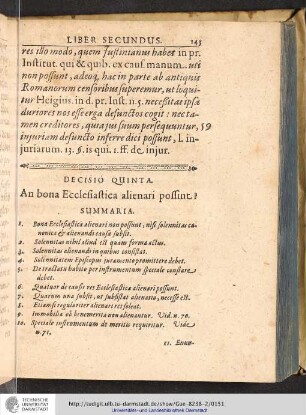 LIBER SECUNDUS. 145
res illo modo, quem Justinianus habet in pr.
Institut. qui & quib. ex cauf manum. uti
non possunt, adeoq; hac in parte ab antiquis
Romanorum censoribus superemur, ut loqui-
tur Heigius. in d. pr. Inst. n. 5. necessitas ipsa
duriores nos esse erga defunctos cogit: nec ta-
men creditores, quia jus suum persequuntur, 59
injuriam defuncto inferre dici possunt, l. in-
juriarum. 13. §. is qui. 1. ff. de. injur.
DECISIO QUINTA.
An bona Ecclesiastica alienari possint?
SUMMARIA.
1. Bona Ecclesiastica alienari non possunt, nisi solennitas ca-
nonica & alienandi causa subsit.
2. Solennitas nihil aliud est quam forma actus.
3. Solennitas alienandi in quibus consistat.
4. Solennitatem Episcopus juramento promittere debet.
5. De tractatu habito per instrumentum speciale constare
debet.
6. Quatuor de causis res Ecclesiastica alienari possunt.
7. Quarum una subsit, ut subsistat alienatio, necesse est.
8. Et causis regulariter alienari res debet.
9. Immobilia ob benemerita non alienantur. Vid. n. 70.
10. Speciale instrumentum de meritis requiritur. Vide
n. 71.
11. Enun-
TECHNISCHE
UNIVERSITÄT
DARMSTADT
http://tudigit.ulb.tu-darmstadt.de/show/Gue-8238-2/0151
Universitäts- und Landesbibliothek Darmstadt